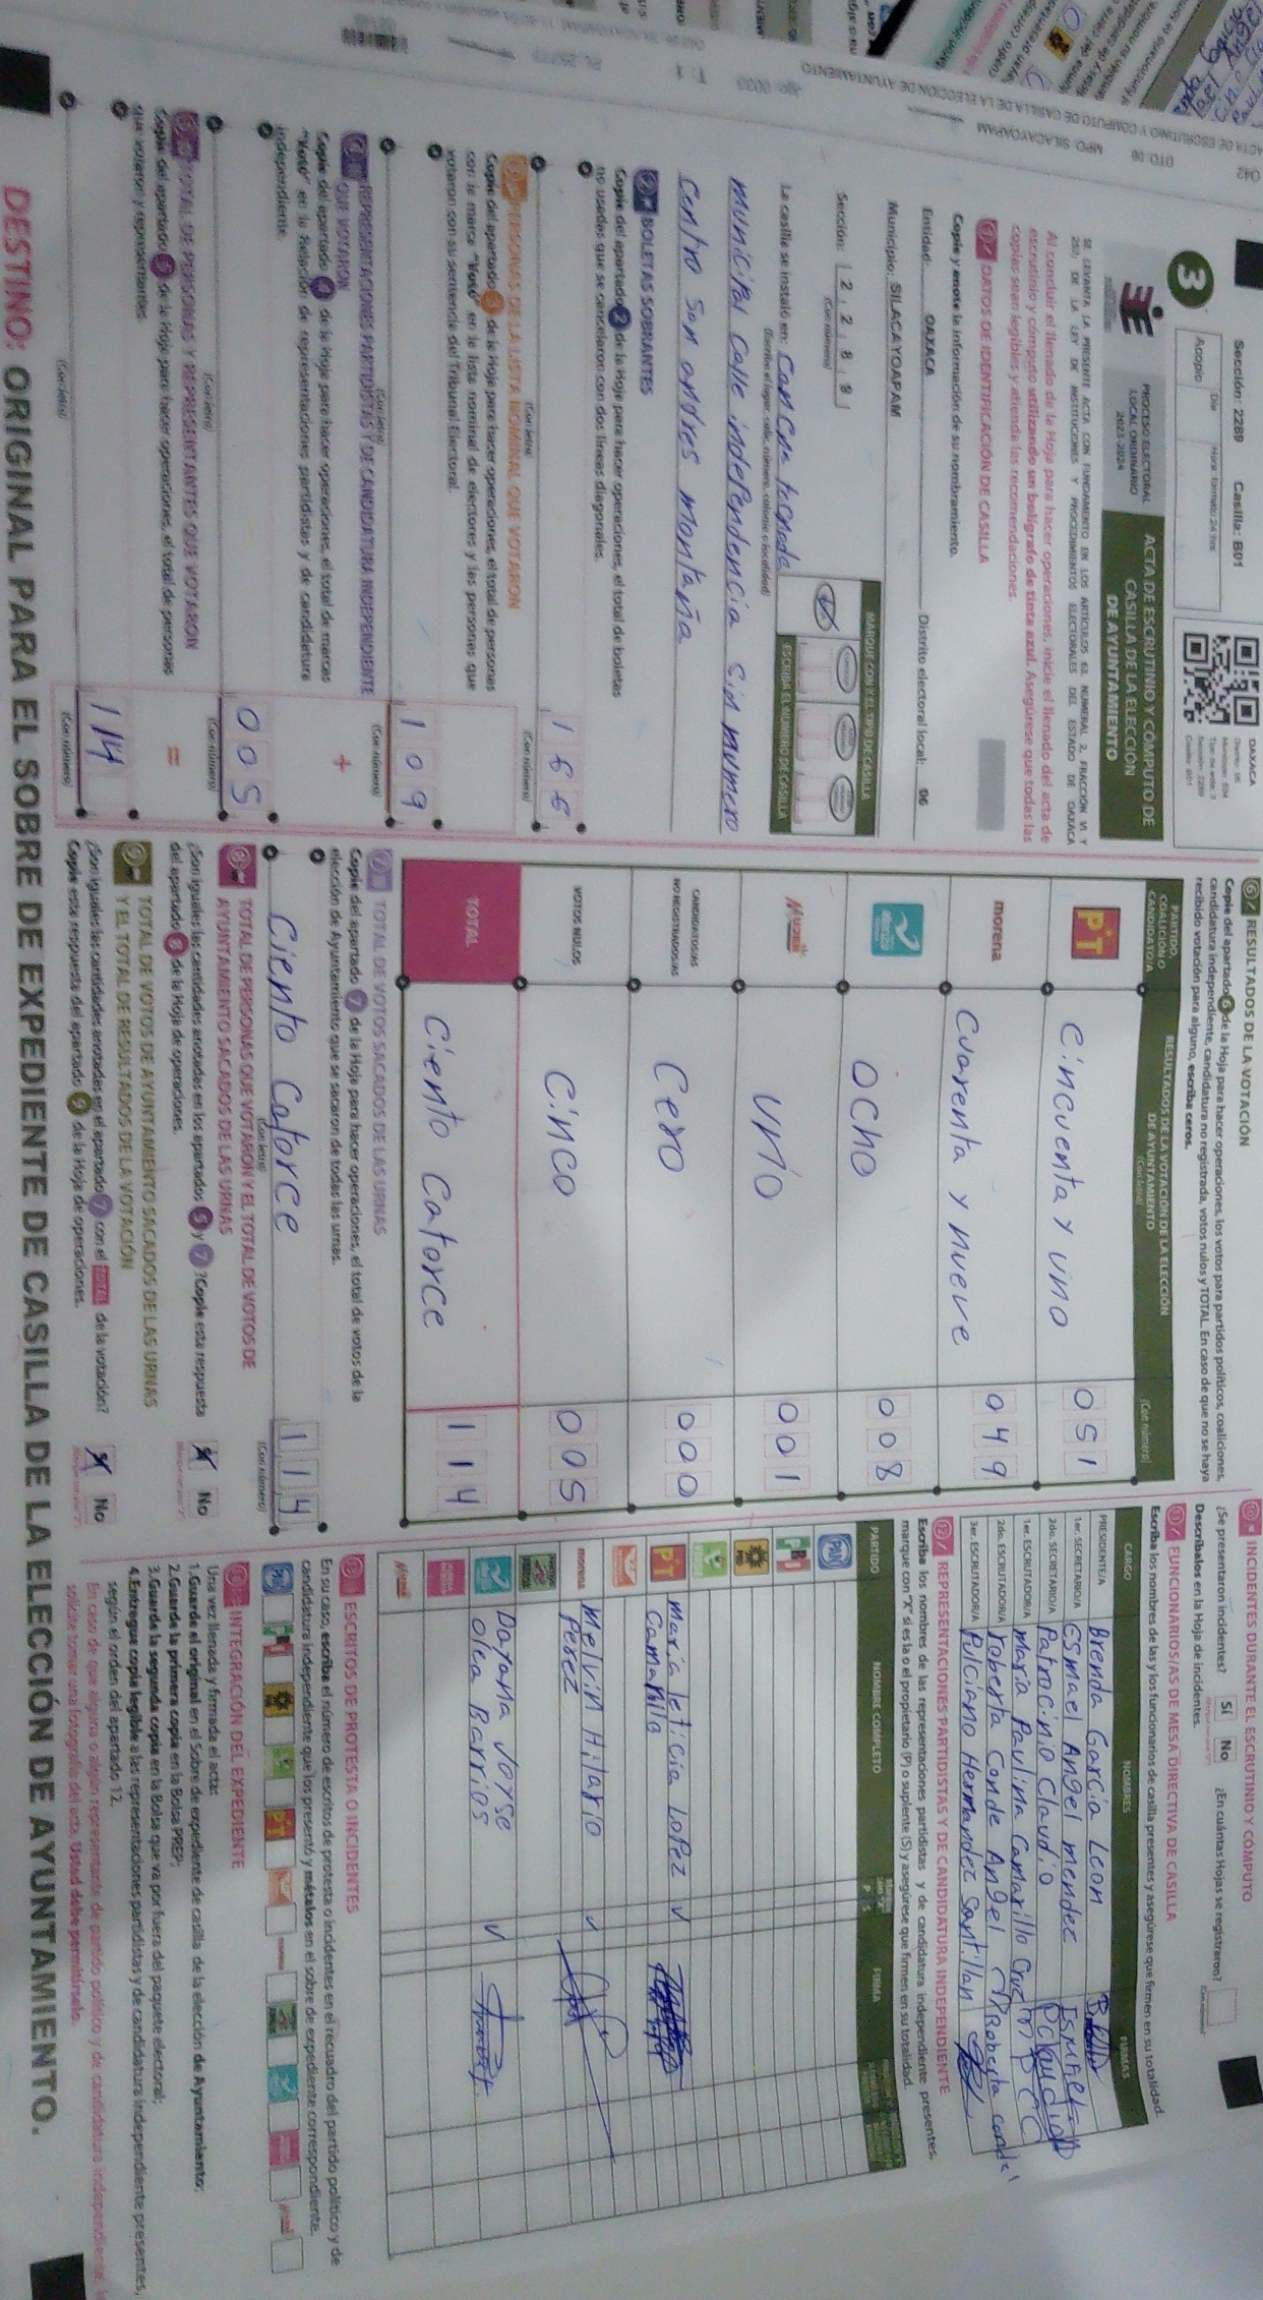 Sección: 2289 Casilla: B01
OAXACA
3
Acopio
Día
Hora: formato 24 hrs
PROCESO ELECTORAL
LOCAL ORDINARIO
2023-2024
ACTA DE ESCRUTINIO Y CÓMPUTO DE
CASILLA DE LA ELECCIÓN
DE AYUNTAMIENTO
SE LEVANTA LA PRESENTE ACTA CON FUNDAMENTO EN LOS ARTÍCULOS 63, NUMERAL 2, FRACCIÓN VI Y
DE LA LEY DE INSTITUCIONES Y PROCEDIMIENTOS ELECTORALES DEL ESTADO DE OAXACA
Al concluir el llenado de la Hoja para hacer operaciones, inicie el llenado del acta de
escrutinio y cómputo utilizando un bolígrafo de tinta azul. Asegúrese que todas las
copias sean legibles y atienda las recomendaciones.
1 DATOS DE IDENTIFICACIÓN DE CASILLA
Copie y anote la información de su nombramiento.
Entidad: OAXACA Distrito electoral local: 06
Municipio: SILACAYOAPAM
Sección: 2 2 8 9
(Con número)
MARQUE CON X EL TIPO DE CASILLA
ESCRIBA EL NÚMERO DE CASILLA
La casilla se instaló en: Cancha techada
(Escriba el lugar, calle, número, colonia o localidad)
municipal calle independencia sin numero
centro san andres montaña
2 BOLETAS SOBRANTES
Copie del apartado 2 de la Hoja para hacer operaciones, el total de boletas
no usadas que se cancelaron con dos líneas diagonales.
166
(Con letra) (Con número)
3 PERSONAS DE LA LISTA NOMINAL QUE VOTARON
Copie del apartado 3 de la Hoja para hacer operaciones, el total de personas
con la marca "Votó" en la lista nominal de electores y las personas que
votaron con su sentencia del Tribunal Electoral.
109
(Con letra) (Con número)
4 REPRESENTACIONES PARTIDISTAS Y DE CANDIDATURA INDEPENDIENTE
QUE VOTARON
Copie del apartado 4 de la Hoja para hacer operaciones, el total de marcas
"Votó" en la Relación de representaciones partidistas y de candidatura
independiente.
+
005
(Con letra) (Con número)
5 TOTAL DE PERSONAS Y REPRESENTANTES QUE VOTARON
Copie del apartado 5 de la Hoja para hacer operaciones, el total de personas
que votaron y representantes.
=
114
(Con letra) (Con número)
6 RESULTADOS DE LA VOTACIÓN
Copie del apartado 6 de la Hoja para hacer operaciones, los votos para partidos políticos, coaliciones,
candidatura independiente, candidatura no registrada, votos nulos y TOTAL. En caso de que no se haya
recibido votación para alguno, escriba ceros.
PARTIDO, COALICIÓN O CANDIDATO/A
RESULTADOS DE LA VOTACIÓN DE LA ELECCIÓN DE AYUNTAMIENTO
(Con letra) (Con número)
PT Cincuenta y uno 051
morena Cuarenta y nueve 049
ocho 008
uno 001
CANDIDATOS/AS NO REGISTRADOS/AS Cero 000
VOTOS NULOS Cinco 005
TOTAL Ciento Catorce 114
7 TOTAL DE VOTOS SACADOS DE LAS URNAS
Copie del apartado 7 de la Hoja para hacer operaciones, el total de votos de la
elección de Ayuntamiento que se sacaron de todas las urnas.
Ciento Catorce 114
(Con letra) (Con número)
8 TOTAL DE PERSONAS QUE VOTARON Y EL TOTAL DE VOTOS DE
AYUNTAMIENTO SACADOS DE LAS URNAS
¿Son iguales las cantidades anotadas en los apartados 5 y 7? Copie esta respuesta
del apartado 8 de la Hoja de operaciones.
No
9 TOTAL DE VOTOS DE AYUNTAMIENTO SACADOS DE LAS URNAS
Y EL TOTAL DE RESULTADOS DE LA VOTACIÓN
¿Son iguales las cantidades anotadas en el apartado 7 con el TOTAL de la votación?
Copie esta respuesta del apartado 9 de la Hoja de operaciones.
No
10 INCIDENTES DURANTE EL ESCRUTINIO Y CÓMPUTO
¿Se presentaron incidentes? Sí No ¿En cuántas Hojas se registraron?
Descríbalos en la Hoja de incidentes.
11 FUNCIONARIOS/AS DE MESA DIRECTIVA DE CASILLA
Escriba los nombres de las y los funcionarios de casilla presentes y asegúrese que firmen en su totalidad.
CARGO NOMBRES FIRMAS
PRESIDENTE/A Brenda Garcia Leon
1er. SECRETARIO/A Esmael Angel mendez
2do. SECRETARIO/A Patrocinio Claudio
1er. ESCRUTADOR/A maria Paulina Camarillo Cruz
2do. ESCRUTADOR/A roberta Conde Angel
3er. ESCRUTADOR/A Pulciano Hernandez Santillan
12 REPRESENTACIONES PARTIDISTAS Y DE CANDIDATURA INDEPENDIENTE
Escriba los nombres de las representaciones partidistas y de candidatura independiente presentes,
marque con "X" si es la o el propietario (P) o suplente (S) y asegúrese que firmen en su totalidad.
PARTIDO NOMBRE COMPLETO FIRMA
PAN
PRI
PT maria leticia Lopez
Camarillo
morena melvin Hilario
Perez
Dayana Jorse
olea Barrios
13 ESCRITOS DE PROTESTA O INCIDENTES
En su caso, escriba el número de escritos de protesta o incidentes en el recuadro del partido político y de
candidatura independiente que los presentó y métalos en el sobre de expediente correspondiente.
14 INTEGRACIÓN DEL EXPEDIENTE
Una vez llenada y firmada el acta:
1.Guarde el original en el Sobre de expediente de casilla de la elección de Ayuntamiento;
2.Guarde la primera copia en la Bolsa PREP;
3.Guarde la segunda copia en la Bolsa que va por fuera del paquete electoral;
4.Entregue copia legible a las representaciones partidistas y de candidatura independiente presentes,
según el orden del apartado 12.
En caso de que alguna o algún representante de partido político y de candidatura independiente
solicite tomar una fotografía del acta, Usted debe permitírselo.
DESTINO: ORIGINAL PARA EL SOBRE DE EXPEDIENTE DE CASILLA DE LA ELECCIÓN DE AYUNTAMIENTO.